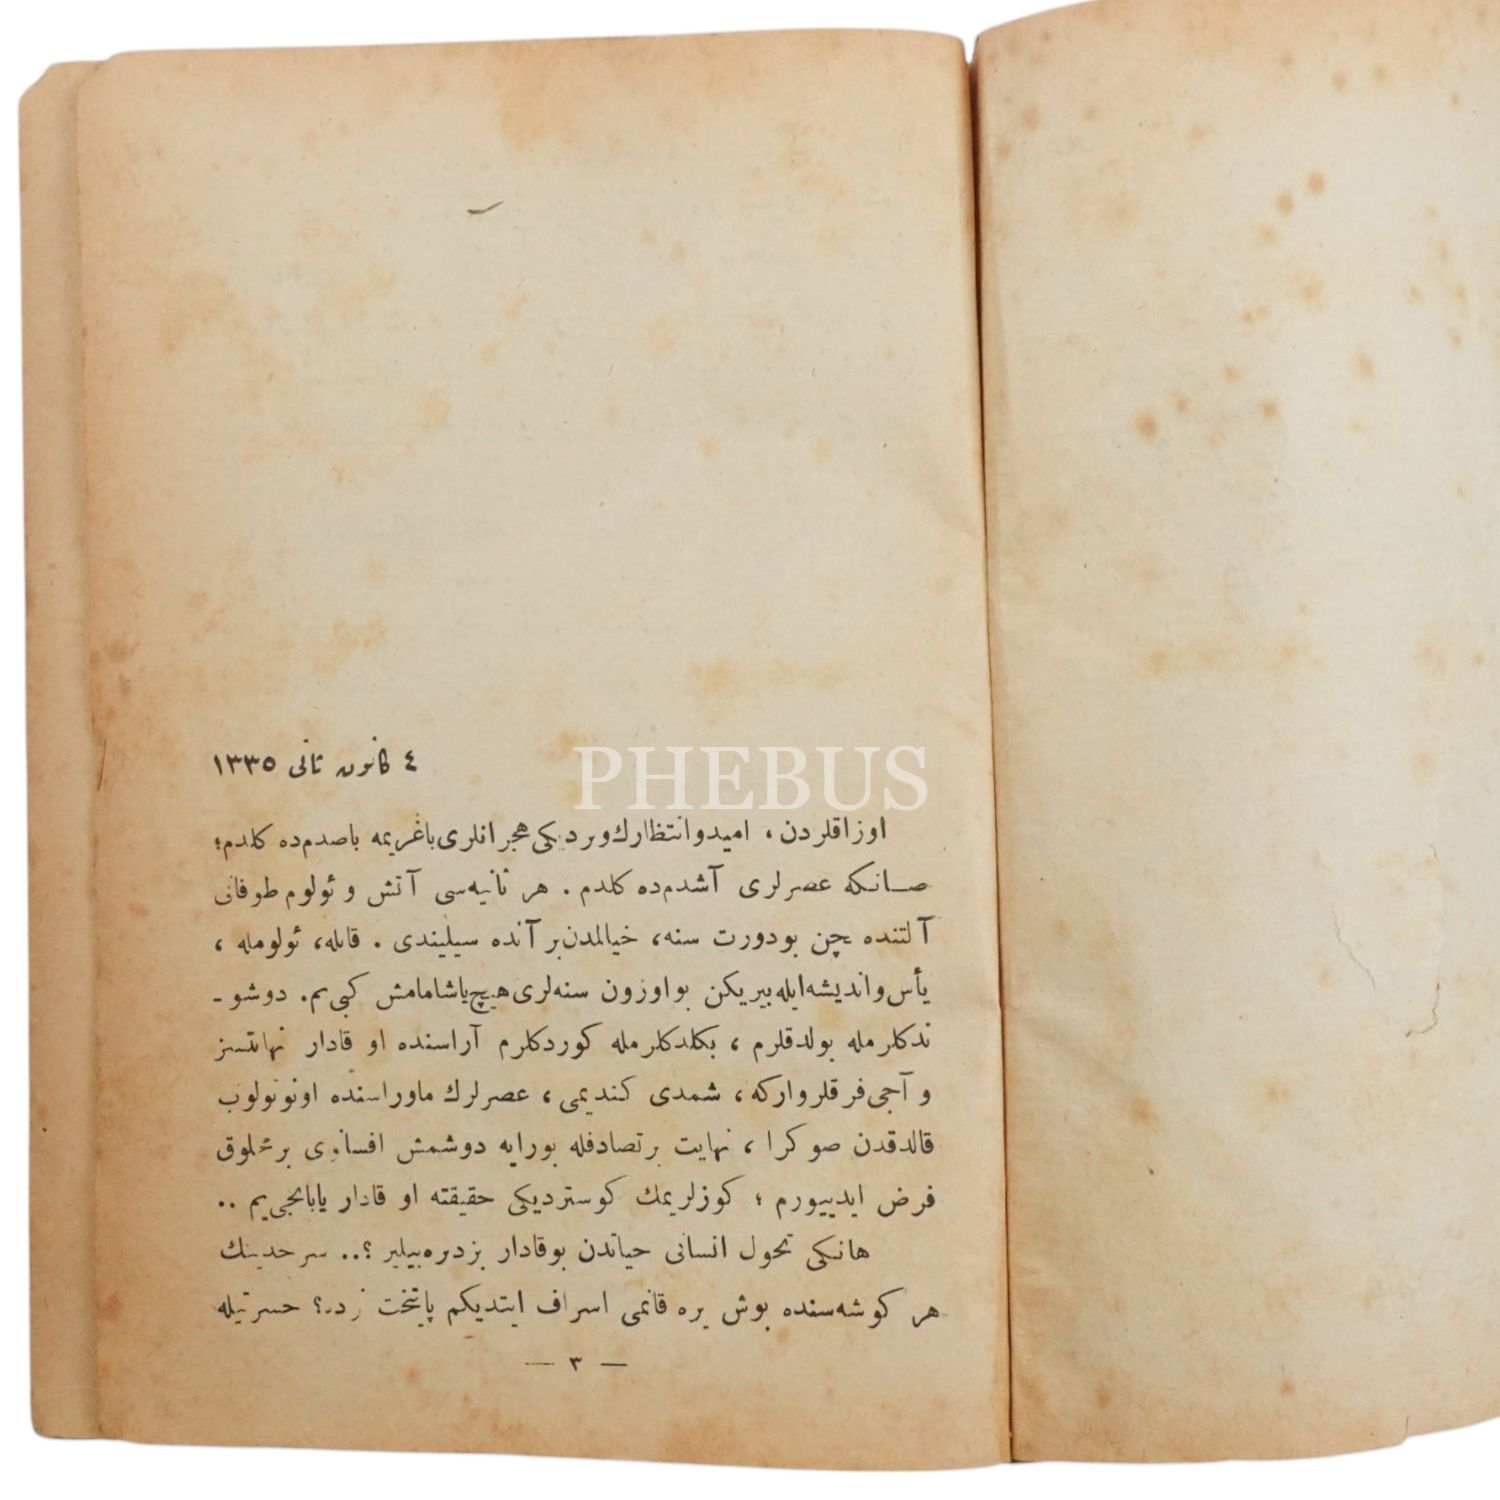 ٤ كانون ثانی ١٣٣٥
PHEBUS
اوزاقلردن ، اميدوانتظارك‌ويرديكی هجرانلری‌باغريمه باصدم‌ده كلدم؛
صــانكه عصرلری آشدم‌ده كلدم . هر ثانيه‌سی آتش و ئولوم طوفانی
آلتنده كچن بودورت سنه، خيالمدن‌بر آنده سيليندی . قانله، ئولومله ،
يأس‌وانديشه‌ايله‌بيريكن بواوزون سنه‌لری‌هيچ‌ياشامامش كبی‌يم. دوشو ـ
ندكلرمله بولدقلرم ، بكلدكلرمله كوردكلرم آراسنده او قادار نهايتسز
و آجی‌فرقلرواركه، شمدی كنديمی ، عصرلرك ماوراسنده اونوتولوب
قالدقدن صوكرا ، نهايت برتصادفله بورايه دوشمش افسانوی برمخلوق
فرض ايدييورم ؛ كوزلريمك كوستردیكی حقيقته او قادار يابانجی‌يم ..
هانـكی تحول انسانی حياتدن بوقادار بزدره‌بيلير ؟.. سرحدينك
هر كوشه‌سنده بوش يره قانمی اسراف ايتديكم پايتخت نرده؟ حسرتيله
— ٣ —